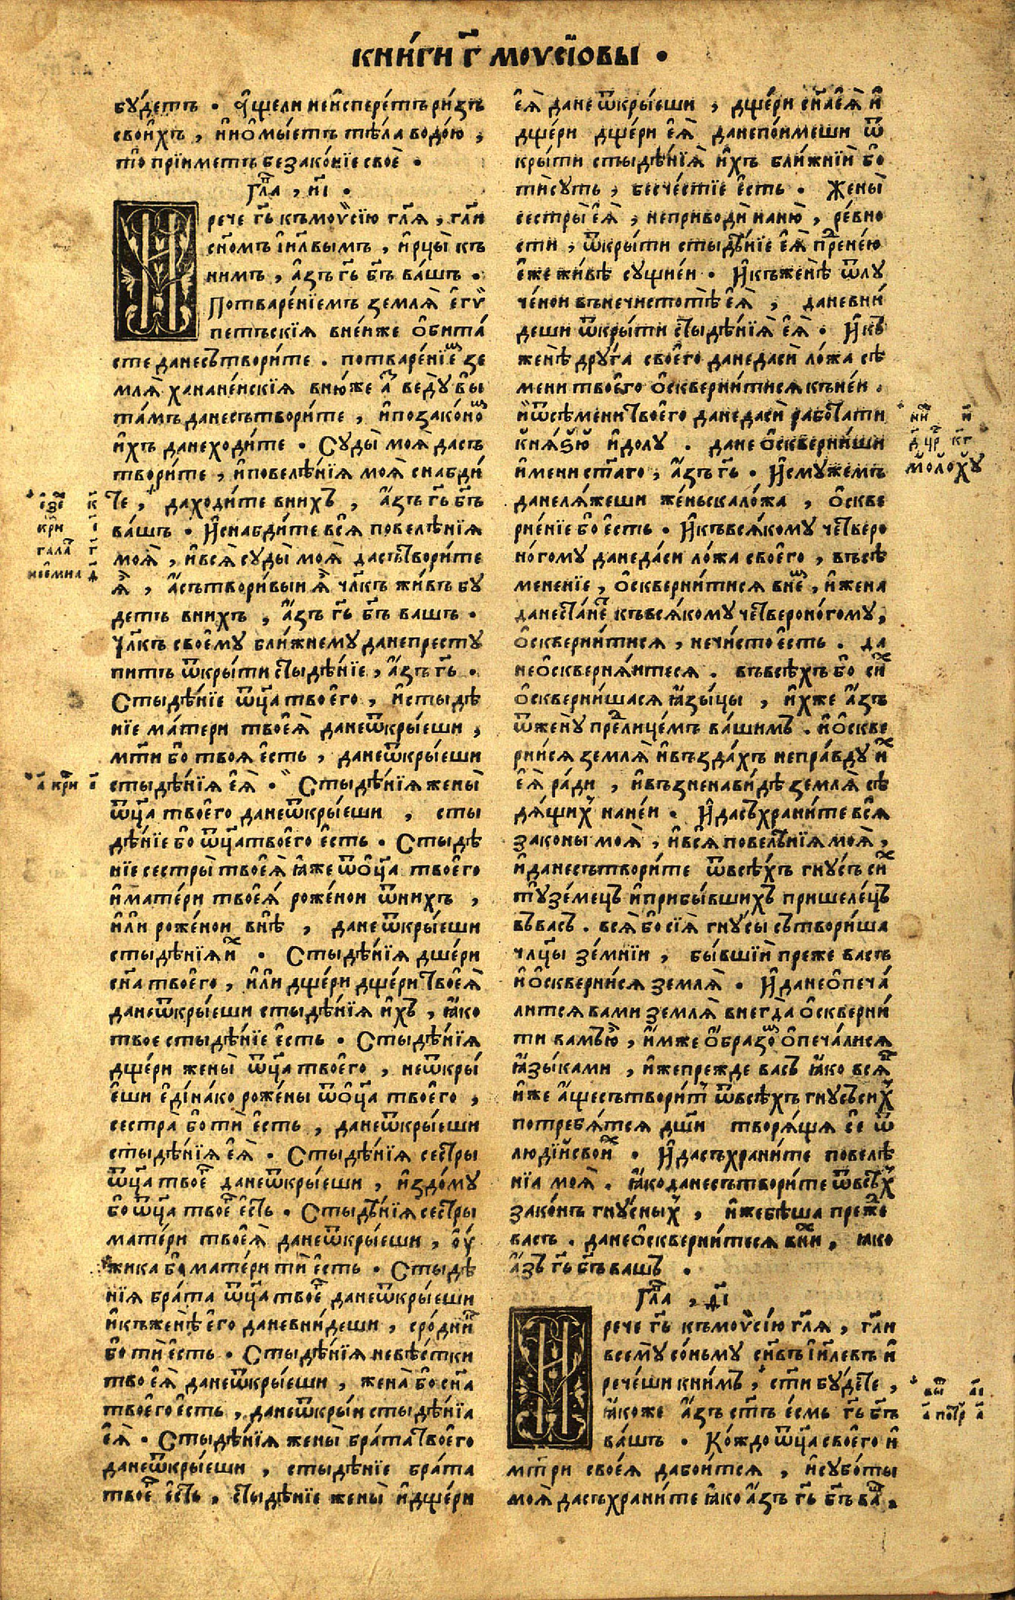 КНИ́ГИ Г҃ МОѴСІ́ОВЫ ·
бꙋ́детъ · а҆́щели неисперетъ ри́зъ
свои́хъ , и҆нѡмы́етъ тѣ́ла водо́ю ,
то̀ прїиметъ беꙁако́нїе своѐ ·
Гла҃ , и҃і ·
И рече гь҃ къмоѵ̈сію гл҃я , гл҃и
сн҃омъ і҆и҃лвымъ , и҆рцы̀ къ
нимъ , а҆́зъ гь҃ бг҃ъ вашъ ·
Потваре́нїемъ землѧ̀ є҆гѵ́
петьскїѧ внейже ѡ҆бита́
сте данесътвори́те . потваре́нїем зе
млѧ̀ хананейскїѧ внюже а҆́з ведꙋ̀ вы
та́мъ данесътвори́те , и҆позако́ном
и҆́хъ данеходи́те · Сꙋды̀ моѧ̀ дасъ
твори́те , и҆повелѣ́нїѧ моѧ̀ снабди́
те , даходи́те вни́хъ , а҆́зъ гь҃ бг҃ъ
вашъ · И҆снабди́те всѧ̀ повелѣ́нїѧ
моѧ̀ , и҆всѧ̀ сꙋды̀ моѧ̀ дасътвори́те
ѧ҆̀ , а҆сътвори́выи ѧ҆̀ чл҃къ жи́въ бꙋ
детъ вни́хъ , а҆́зъ гь҃ бг҃ъ вашъ ·
Чл҃къ своемꙋ бли́жнемꙋ данепрестꙋ
питъ ѿкры́ти стыдѣ́нїе , а҆́зъ гь҃ ·
Стыдѣ́нїе ѿц҃а твоего̀ , и҆стыдѣ́
нїе ма́тери твоеѧ̀ данеѿкры́еши ,
мт҃и бо твоѧ̀ є҆́сть , данеѿкры́еши
стыдѣ́нїѧ є҆ѧ̀ · Стыдѣ́нїѧ жены̀
ѿц҃а твоего̀ данеѿкры́еши , сты
дѣ́нїе бо ѿц҃а твоего̀ є҆́сть · Стыдѣ́
нїе сестры̀ твоеѧ̀ ꙗ҆́же ѿѻц҃а твоего̀
и҆ма́тери твоеѧ̀ роже́нои ѿни́хъ ,
и҆лѝ роже́нои внѣ̀ , данеѿкры́еши
стыдѣ́нїѧ и҆́х · Стыдѣ́нїѧ дщери
сн҃а твоего̀ , и҆лѝ дщери дщери твоеѧ̀
данеѿкры́еши стыдѣ́нїѧ и҆́хъ , ꙗ҆́ко
твое стыдѣ́нїе є҆́сть · Стыдѣ́нїѧ
дщери жены̀ ѿц҃а твоего̀ , неѿкры́
еши є҆дина́ко роже́ны ѿѻц҃а твоего̀ ,
сестра̀ бо тѝ є҆́сть , данеѿкры́еши
стыдѣ́нїѧ є҆ѧ̀ · Стыдѣ́нїѧ сестры
ѿц҃а твоег данеѿкры́еши , и҆здомꙋ
бо ѿц҃а твоег є҆́сть · Стыдѣ́нїѧ сестры
ма́тери твоеѧ̀ данеѿкры́еши , ѹ҆́
жика бо ма́тери тѝ є҆́сть · Стыдѣ́
нїѧ бра́та ѿц҃а твоег данеѿкры́еши
и҆кженѣ̀ є҆го̀ даневни́деши , сро́дник
бо тѝ є҆́сть · Стыдѣ́нїѧ невѣ́стки
твоеѧ̀ данеѿкры́еши , жена̀ бо сн҃а
твоего̀ є҆́сть , данеѿкры́и стыдѣ́нїа
є҆ѧ̀ · Стыдѣ́нїѧ жены̀ бра́та твоего̀
данеѿкры́еши , стыдѣ́нїе бра́та
твоег є҆́сть , стыдѣ́нїе жены̀ и҆дщери
є҆ѧ̀ дане ѿкры́еши , дщери сн҃а є҆ѧ̀ и҆
дщери дщери є҆ѧ̀ данепо́имеши ѿ
кры́ти стыдѣ́нїѧ и҆́хъ бли́жнїи бо
тѝ сꙋть , бесче́стїе є҆́сть · Жены̀
сестры̀ є҆ѧ̀ , неприводѝ на́ню , ре́вно
сти , ѿкры́ти стыдѣ́нїе є҆ѧ̀ пре́днею
є҆ще жи́вѣ сꙋщией · И҆кженѣ̀ ѿлꙋ
ченои внечистотѣ̀ є҆ѧ̀ , даневни́
деши ѿкры́ти стыдѣ́нїѧ є҆ѧ̀ · И҆къ
женѣ̀ дрꙋга своего̀ данедасѝ ло́жа сѣ́
мени твоего̀ ѡ҆скверни́тисѧ кне́и .
и҆ѿсѣмени твоего̀ данедасѝ рабо́тати
кнѧ́ꙃю и҆долꙋ . дане ѡ҆скверни́ши
и҆́мени ст҃аго , а҆́зъ гь҃ · И҆смꙋжемъ
данелѧ́жеши же́ньска ло́жа , ѡ҆скве
рне́нїе бо є҆́сть · И҆квсѧ́комꙋ че́тверо
но́гомꙋ данедасѝ ло́жа своего̀ , всѣ́
мене́нїе , ѡ҆скверни́тисѧ внем , и҆жена
данестанет квсѧ́комꙋ четвероно́гомꙋ ,
ѡ҆скверни́тисѧ , нечи́сто є҆́сть . да
неѡ҆сквернѧ́итесѧ . вовсѣ́хъ бо си́х
ѡ҆скверни́шасѧ ꙗ҆зы́цы , и҆́хже а҆́зъ
ѿженꙋ̀ пред лице́мъ ва́шимъ . и҆ѡ҆скве
рни́сѧ землѧ̀ и҆возда́хъ непра́вдꙋ и҆́х
є҆ѧ̀ ра́ди , и҆возненави́дѣ землѧ̀ сѣ
дѧ́щих на́ней · И҆дасъхрани́те всѧ̀
законы моѧ̀ , и҆всѧ̀ повелѣ́нїѧ моѧ̀ ,
и҆данесътвори́те ѿвсѣ́хъ гнꙋ́съ си́х
тꙋзе́мецъ и҆прибы́вшихъ прише́лецъ
вва́съ . всѧ̀ бо сїѧ̀ гнꙋ́сы сътвори́ша
члц҃ы зе́мнїи , бы́вшїи преже ва́съ
и҆ѡ҆скверни́сѧ землѧ̀ · И҆данеѡ҆печа́
литсѧ ва́ми землѧ̀ внегда̀ ѡ҆скверни́
ти ва́мъ ю , и҆́мже ѡ҆́бразом ѡ҆печа́лисѧ
ꙗ҆зы́ками , и҆́жепрежде ва́съ ꙗ҆́ко всѧ́к
и҆́же а҆́ще сътвори́т ѿвсѣ́хъ гнꙋ́съ си́х
потребѧ́тсѧ дш҃и творѧ́щаѧ се ѿ
людїи свои́х · И҆дасъхрани́те повелѣ́
нїа моѧ̀ . ꙗ҆́коданесътвори́те ѿвсѣ́х
зако́нъ гнꙋ́сных , и҆́жебѣ́ша преже
ва́съ . данеѡ҆скверни́тесѧ вни́х , ꙗ҆́ко
а҆́зъ гь҃ бг҃ъ вашъ ·
Гла҃ , ѳ҃і
И рече гь҃ къмоѵ̈сію гл҃я , гл҃и
всемꙋ̀ со́ньмꙋ сн҃въ і҆и҃левъ и҆
рече́ши кни́мъ , ст҃и бꙋ́дете ,
ꙗ҆́коже а҆́зъ ст҃ъ є҆́смь гь҃ бг҃ъ
ва́шъ · Ко́ждо ѿц҃а своего̀ и҆
мт҃ри своеѧ̀ дабои́тсѧ , и҆сꙋбо́ты
моѧ̀ дасъхрани́те ꙗ҆́ко а҆́зъ гь҃ бг҃ъ ваш .
є҆зе к҃
кри і҃
гала г҃
а҃ кри
мѡ́лохꙋ
а҃ петр а҃